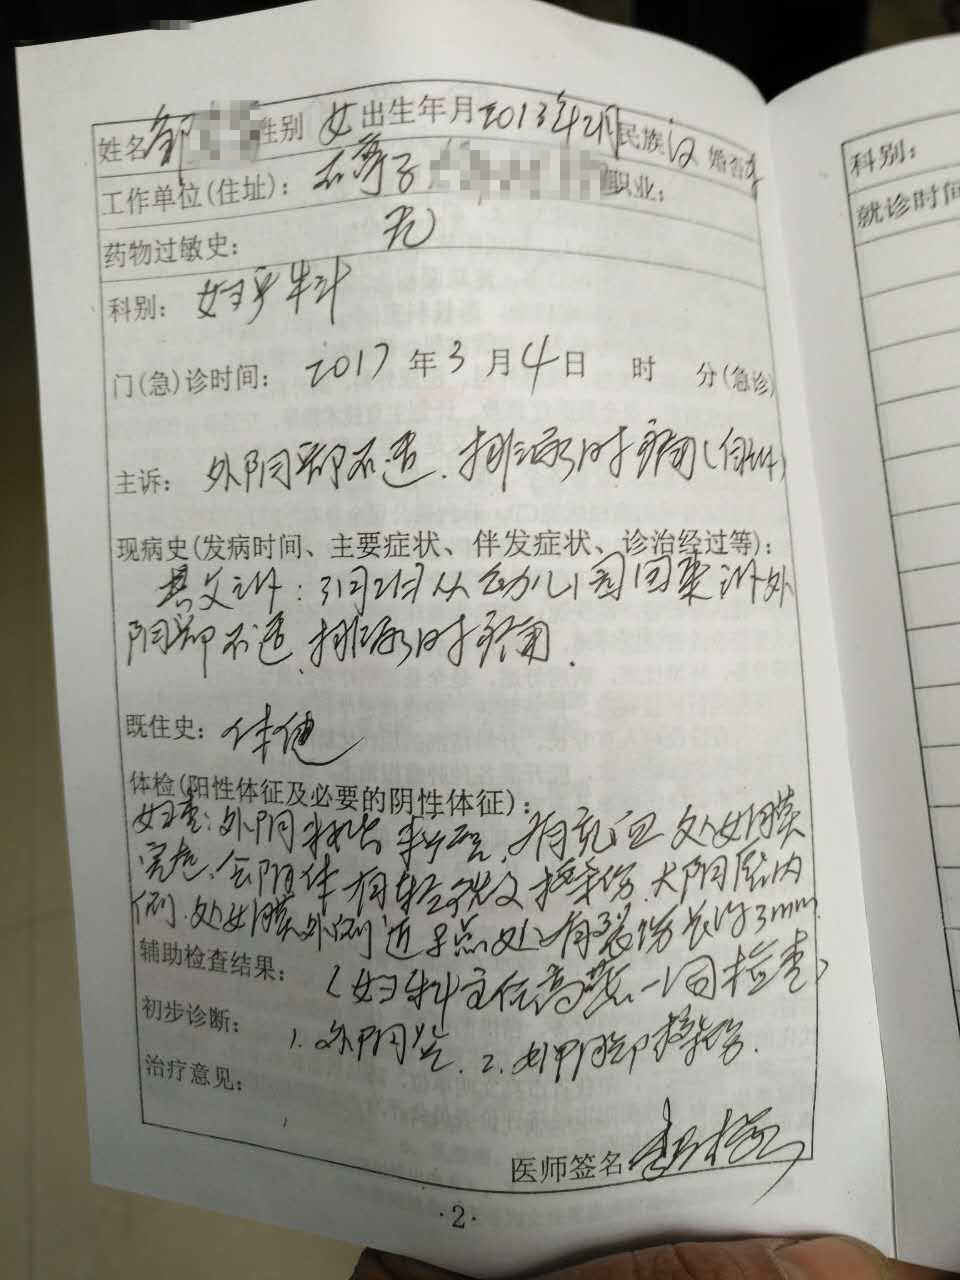 姓名 邹 性别 女 出生年月 2013年2月 民族 汉 婚否
工作单位(住址): 石 子 职业:
药物过敏史: 无
科别: 妇产科
门(急)诊时间: 2017年3月4日 时 分(急诊)
主诉: 外阴部不适、排尿时疼痛(
现病史(发病时间、主要症状、伴发症状、诊治经过等):
其父诉: 3月2日从幼儿园回来诉外
阴部不适、排尿时疼痛.
既住史: 体健
体检(阳性体征及必要的阴性体征):
妇查: 外阴 有充血 处女膜
完整. 会阴体有轻 擦伤. 大阴唇内
侧. 处女膜外侧近 点处有裂伤长约3mm.
辅助检查结果: (妇科主任高 一同检查)
初步诊断: 1. 外阴炎. 2. 外阴部擦伤.
治疗意见:
医师签名
·2·
科别:
就诊时间